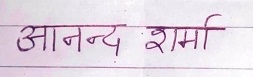 आनन्द शर्मा